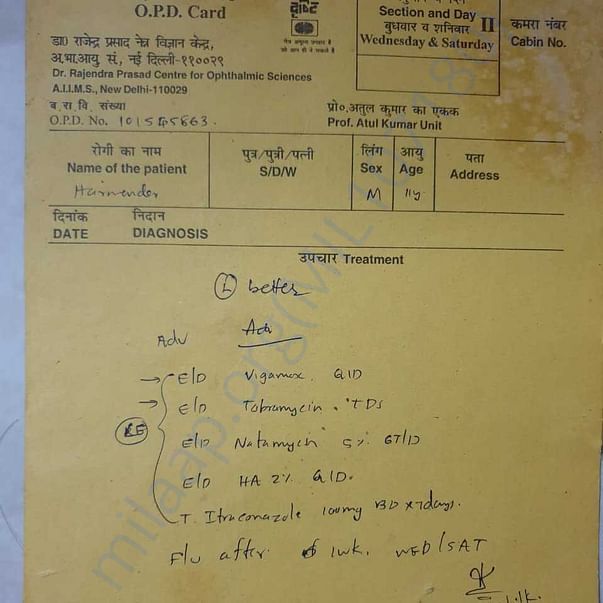 O.P.D. Card
डा० राजेन्द्र प्रसाद नेत्र विज्ञान केन्द्र,
अ.भा.आयु. सं., नई दिल्ली-११००२९
Dr. Rajendra Prasad Centre for Ophthalmic Sciences
A.I.I.M.S., New Delhi-110029
ब.रा.वि. संख्या
O.P.D. No. 101545863.
Section and Day II
बुधवार व शनिवार
Wednesday & Saturday
कमरा नंबर
Cabin No.
प्रो०.अतुल कुमार का एकक
Prof. Atul Kumar Unit
रोगी का नाम
Name of the patient
पुत्र/पुत्री/पत्नी
S/D/W
लिंग
Sex
M
आयु
Age
11y
पता
Address
दिनांक निदान
DATE DIAGNOSIS
उपचार Treatment
L better
Adv Adv
E/D Vigamox. QID
E/D Tobramycin. TDS
E/D Natamycin 5% 6T/D
E/D HA 2% QID.
T. Itraconazole 100mg BD x 7days.
F/U after 1wk. WED/SAT
milaap.org